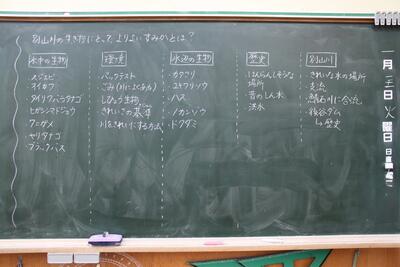 別山川の生き方にとって、よりよいすみかとは?
水中の生物
・スジエビ
・オイカワ
・タイリクバラタナゴ
・ヒガシシマドジョウ
・アカザ
・ヤリタナゴ
・ブラックバス
環境
・パックテスト
・ごみ(川によくある力)
・しひょう生物
・きれいさの基準
・川をきれいにする方法
水辺の生物
・カタクリ
・ユキワリソウ
・ハス
・ノカンゾウ
・ドクダミ
歴史
・はんらんしそうな
場所
・昔のしん水
・洪水
別山川
・きれいな水の場所
・支流
・鯖石川に合流
・後谷ダム
↳歴史
一月
三日
火
曜日
日直